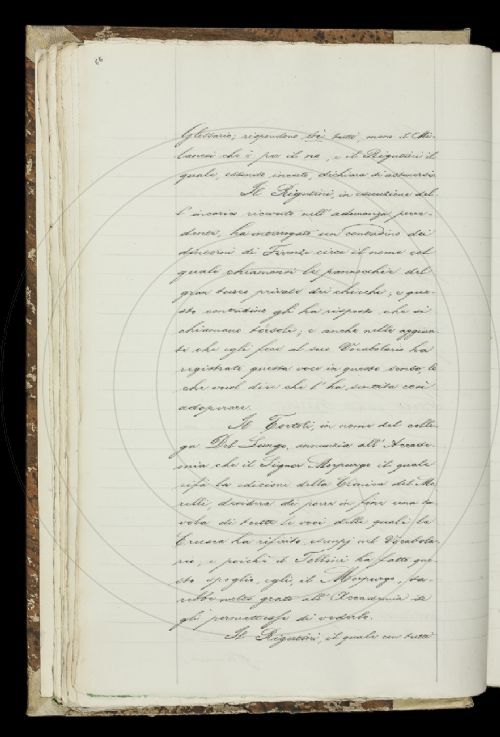 66
Glossario; rispondono sì tutti, meno il Mi-
lanesi che è per il no, e il Rigutini il
quale, essendo incerto, dichiara di astenersi.
Il Rigutini, in esecuzione del-
l'incarico ricevuto nell'adunanza prece-
dente, ha interrogato un contadino dei
dintorni di Firenze circa il nome col
quale chiamansi le pannocchie del
gran turco private dei chicchi; e que-
sto contadino gli ha risposto che si
chiamano tórsoli; e anche nelle aggiun-
te che egli fece al suo Vocabolario ha
registrato questa voce in questo senso, lo
che vuol dire che l'ha sentita così
adoperare.
Il Tortoli, in nome del colle-
ga Del Lungo, annunzia all'Accade-
mia che il Signor Morpurgo il quale
rifà la edizione della Cronica del Mo-
relli, desidera di porre in fine una ta-
vola di tutte le voci delle quali la
Crusca ha riferito esempj nel Vocabola-
rio; e poichè il Tobbini ha fatto que-
sto spoglio, egli, il Morpurgo, sa-
rebbe molto grato all'Accademia se
gli permettesse di vederlo.
Il Rigutini, il quale con tutti